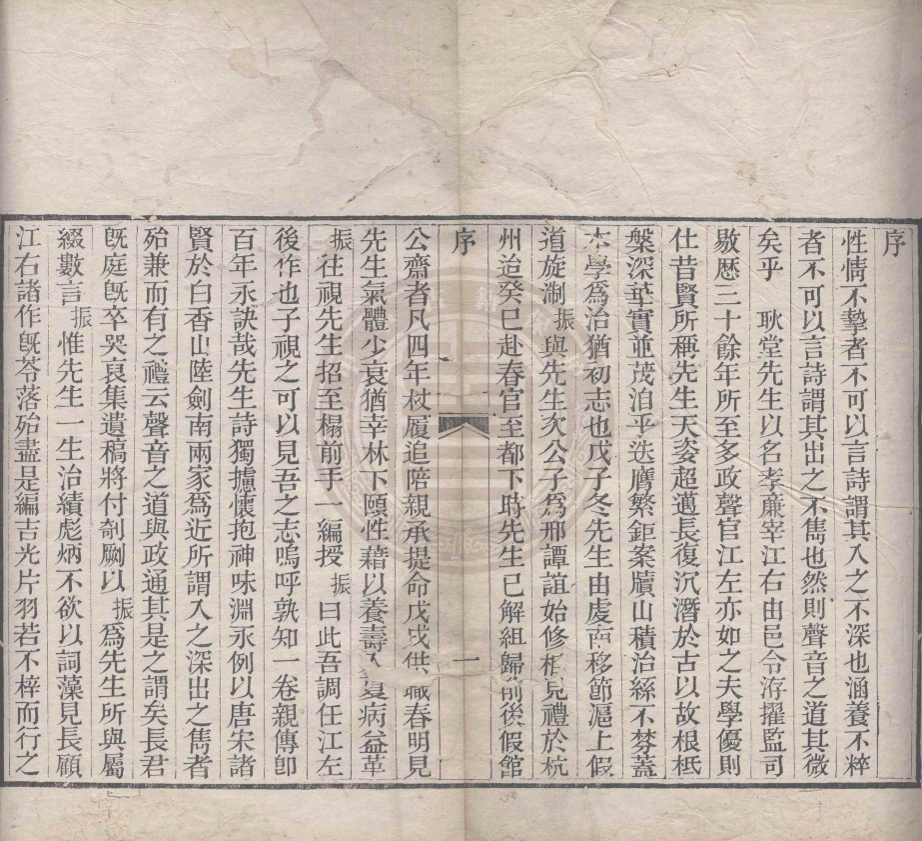 序
性情不摯者不可以言詩謂其入之不深也涵養不粹
者不可以言詩謂其出之不雋也然則聲音之道其微
矣乎 耿堂先生以名孝廉宰江右由邑令洊擢監司
敭歷三十餘年所至多政聲官江左亦如之夫學優則
仕昔賢所稱先生天姿超邁長復沉潛於古以故根柢
槃深華實並茂洎乎迭膺繁鉅案牘山積治絲不棼蓋
本學爲治猶初志也戊子冬先生由虔南移節滬上假
道旋淛振與先生次公子爲邢譚誼始修相見禮於杭
州迨癸巳赴春官至都下時先生已解組歸前後假館
序
一
公齋者凡四年杖履追陪親承提命戊戌供職春明見
先生氣體少衰猶幸林下頤性藉以養壽入夏病益革
振往視先生招至榻前手一編授振曰此吾調任江左
後作也子視之可以見吾之志嗚呼孰知一卷親傳卽
百年永訣哉先生詩獨攄懷抱神味淵永例以唐宋諸
賢於白香山陸劍南兩家爲近所謂入之深出之雋者
殆兼而有之禮云聲音之道與政通其是之謂矣長君
旣庭旣卒哭裒集遺稿將付剞劂以振爲先生所與屬
綴數言振惟先生一生治績彪炳不欲以詞藻見長顧
江右諸作旣苓落殆盡是編吉光片羽若不梓而行之